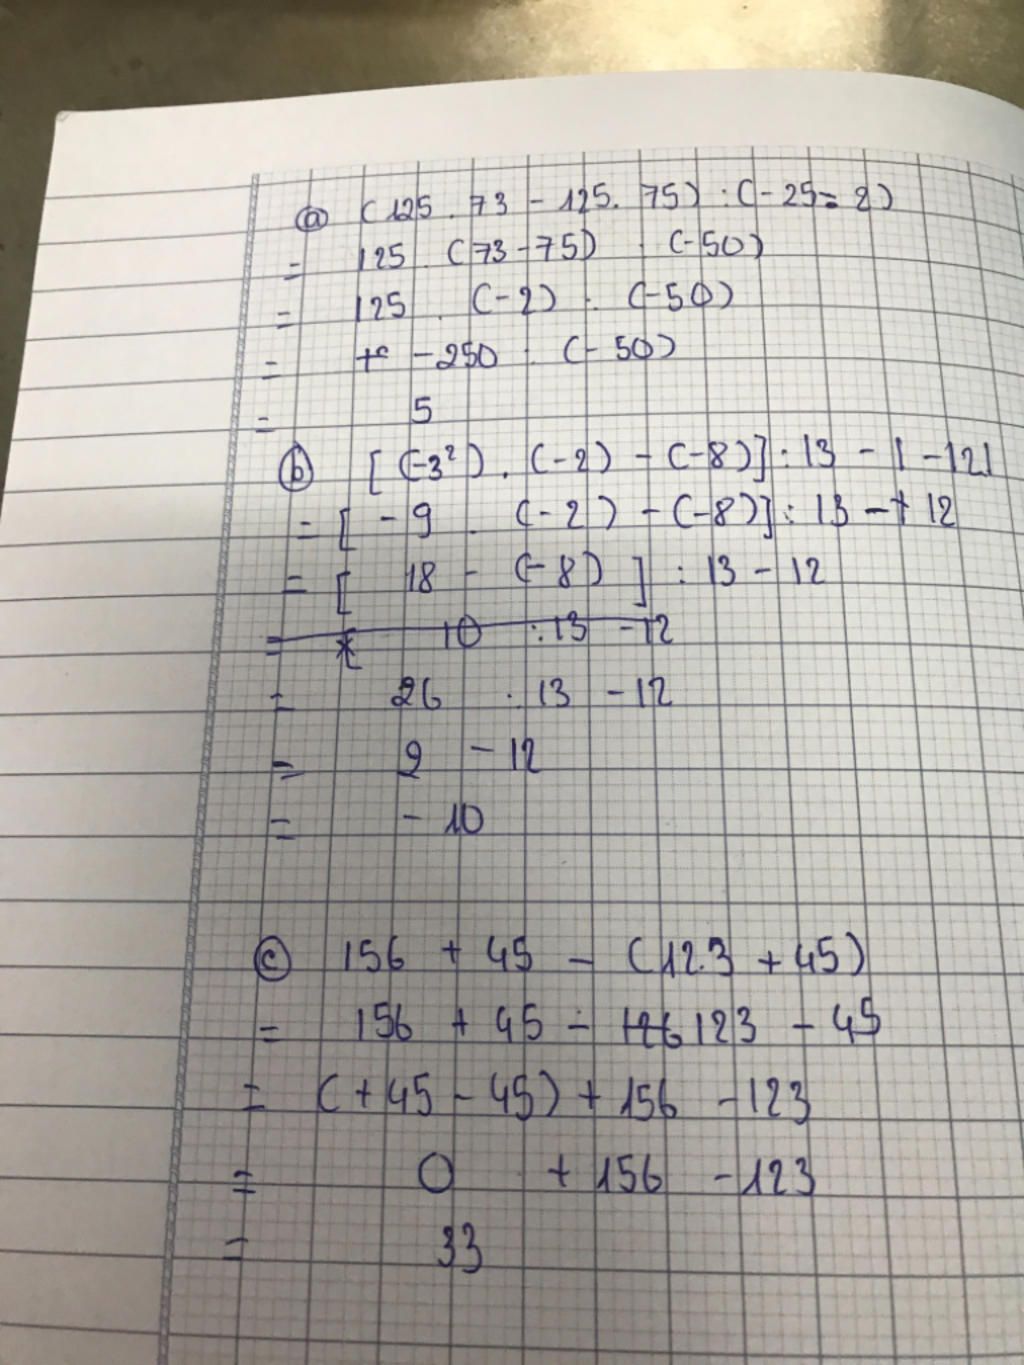 a) (125 . 73 - 125. 75) : (-25 = 2)
= 125 . (73 - 75) : (-50)
= 125 . (-2) : (-50)
= -250 : (-50)
= 5
b) [(-3²) . (-2) - (-8)] : 13 - | -12|
= [ -9 . (-2) - (-8)] : 13 - 12
= [ 18 - (-8) ] : 13 - 12
= 10 : 13 - 12
= 26 : 13 - 12
= 2 - 12
= - 10
c) 156 + 45 - (12.3 + 45)
= 156 + 45 - 126 123 - 45
= (+45 - 45) + 156 - 123
= 0 + 156 - 123
= 33